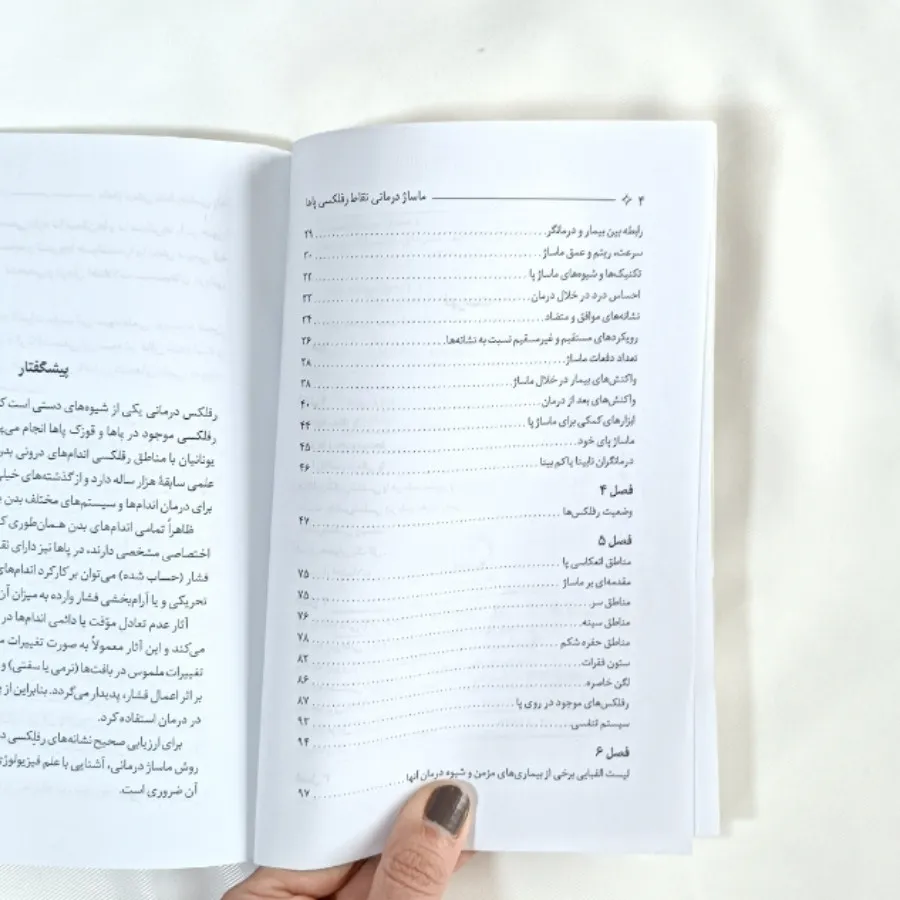 ۴ ماساژ درمانی نقاط رفلکسی پاها
رابطه بین بیمار و درمانگر ۲۹
سرعت، ریتم و عمق ماساژ ۳۰
تکنیک‌ها و شیوه‌های ماساژ پا ۳۲
احساس درد در خلال درمان ۳۳
نشانه‌های موافق و متضاد ۳۴
رویکردهای مستقیم و غیرمستقیم نسبت به نشانه‌ها ۳۶
تعداد دفعات ماساژ ۳۸
واکنش‌های بیمار در خلال ماساژ ۳۸
واکنش‌های بعد از درمان ۴۰
ابزارهای کمکی برای ماساژ پا ۴۴
ماساژ پای خود ۴۵
درمانگران نابینا یا کم بینا ۴۶
فصل ۴
وضعیت رفلکس‌ها ۴۷
فصل ۵
مناطق انعکاسی پا ۷۵
مقدمه‌ای بر ماساژ ۷۵
مناطق سر ۷۶
مناطق سینه ۷۸
مناطق حفره شکم ۸۲
ستون فقرات ۸۶
لگن خاصره ۸۷
رفلکس‌های موجود در روی پا ۹۳
سیستم تنفسی ۹۴
فصل ۶
لیست الفبایی برخی از بیماری‌های مزمن و شیوه درمان آنها ۹۷
پیشگفتار
رفلکس درمانی یکی از شیوه‌های دستی است که
رفلکسی موجود در پاها و قوزک پاها انجام
یونانیان با مناطق رفلکسی اندام‌های درونی
علمی سابقهٔ هزار ساله دارد و از گذشته‌های
برای درمان اندام‌ها و سیستم‌های مختلف بدن
ظاهراً تمامی اندام‌های بدن همان‌طوری
اختصاصی مشخصی دارند، در پاها نیز دارای
فشار (حساب شده) می‌توان بر کارکرد اندام‌های
تحریکی و یا آرام‌بخشی فشار وارده به میزان
آثار عدم تعادل مؤقت یا دائمی اندام‌ها در
می‌کند و این آثار معمولاً به صورت تغییرات
تغییرات ملموس در بافت‌ها (نرمی یا سفتی) و
بر اثر اعمال فشار، پدیدار می‌گردد. بنابراین از
در درمان استفاده کرد.
برای ارزیابی صحیح نشانه‌های رفلکسی
روش ماساژ درمانی، آشنایی با علم
آن ضروری است.